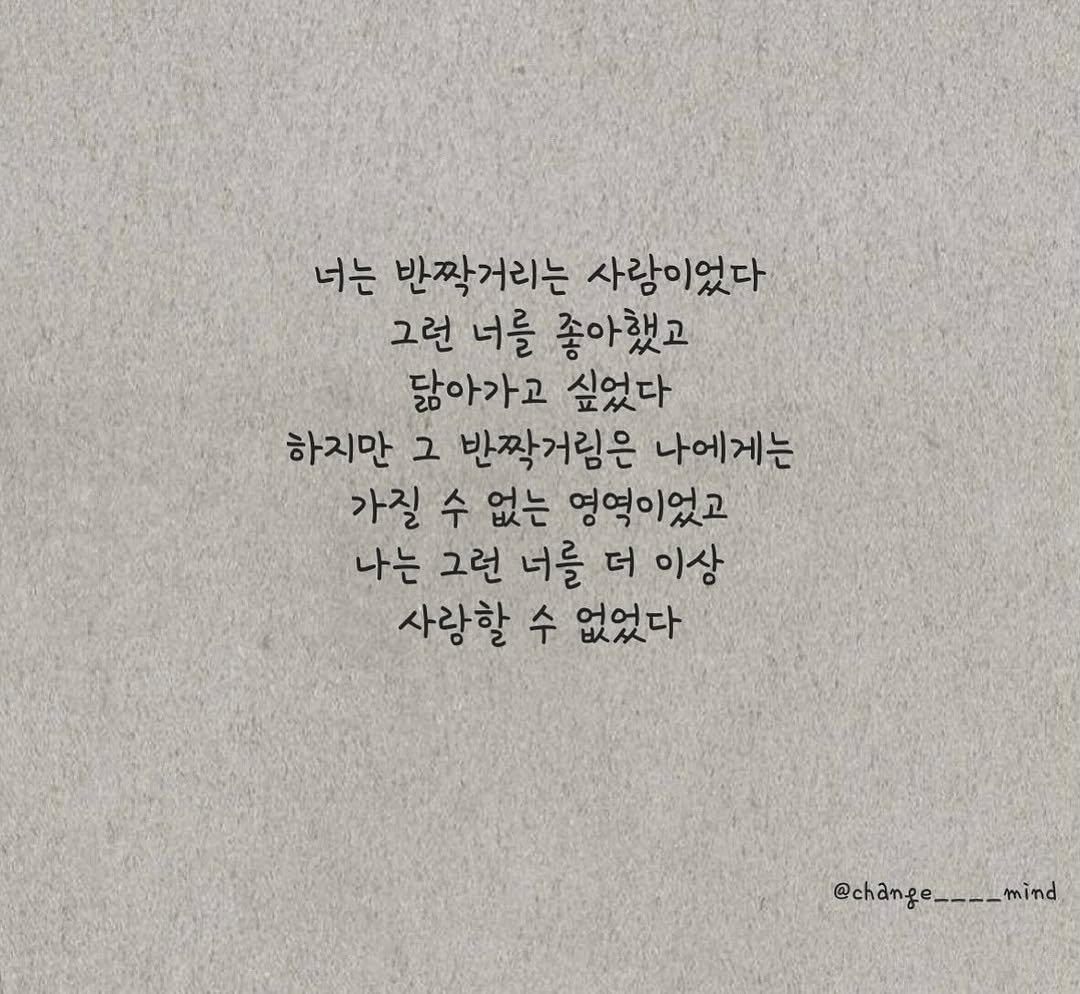 너는 반짝거리는 사람이었다
그런 너를 좋아했고
닮아가고 싶었다
하지만 그 반짝거림은 나에게는
가질 수 없는 영역이었고
나는 그런 너를 더 이상
사랑할 수 없었다
@change____mind